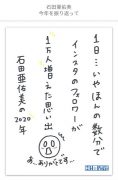 石田亜佑美
今年を振り返って
1日…いやほんの数分で
インスタのフォロワーが
1万人増えた思い出
あ、ありがとです…
石田亜佑美の
2020年